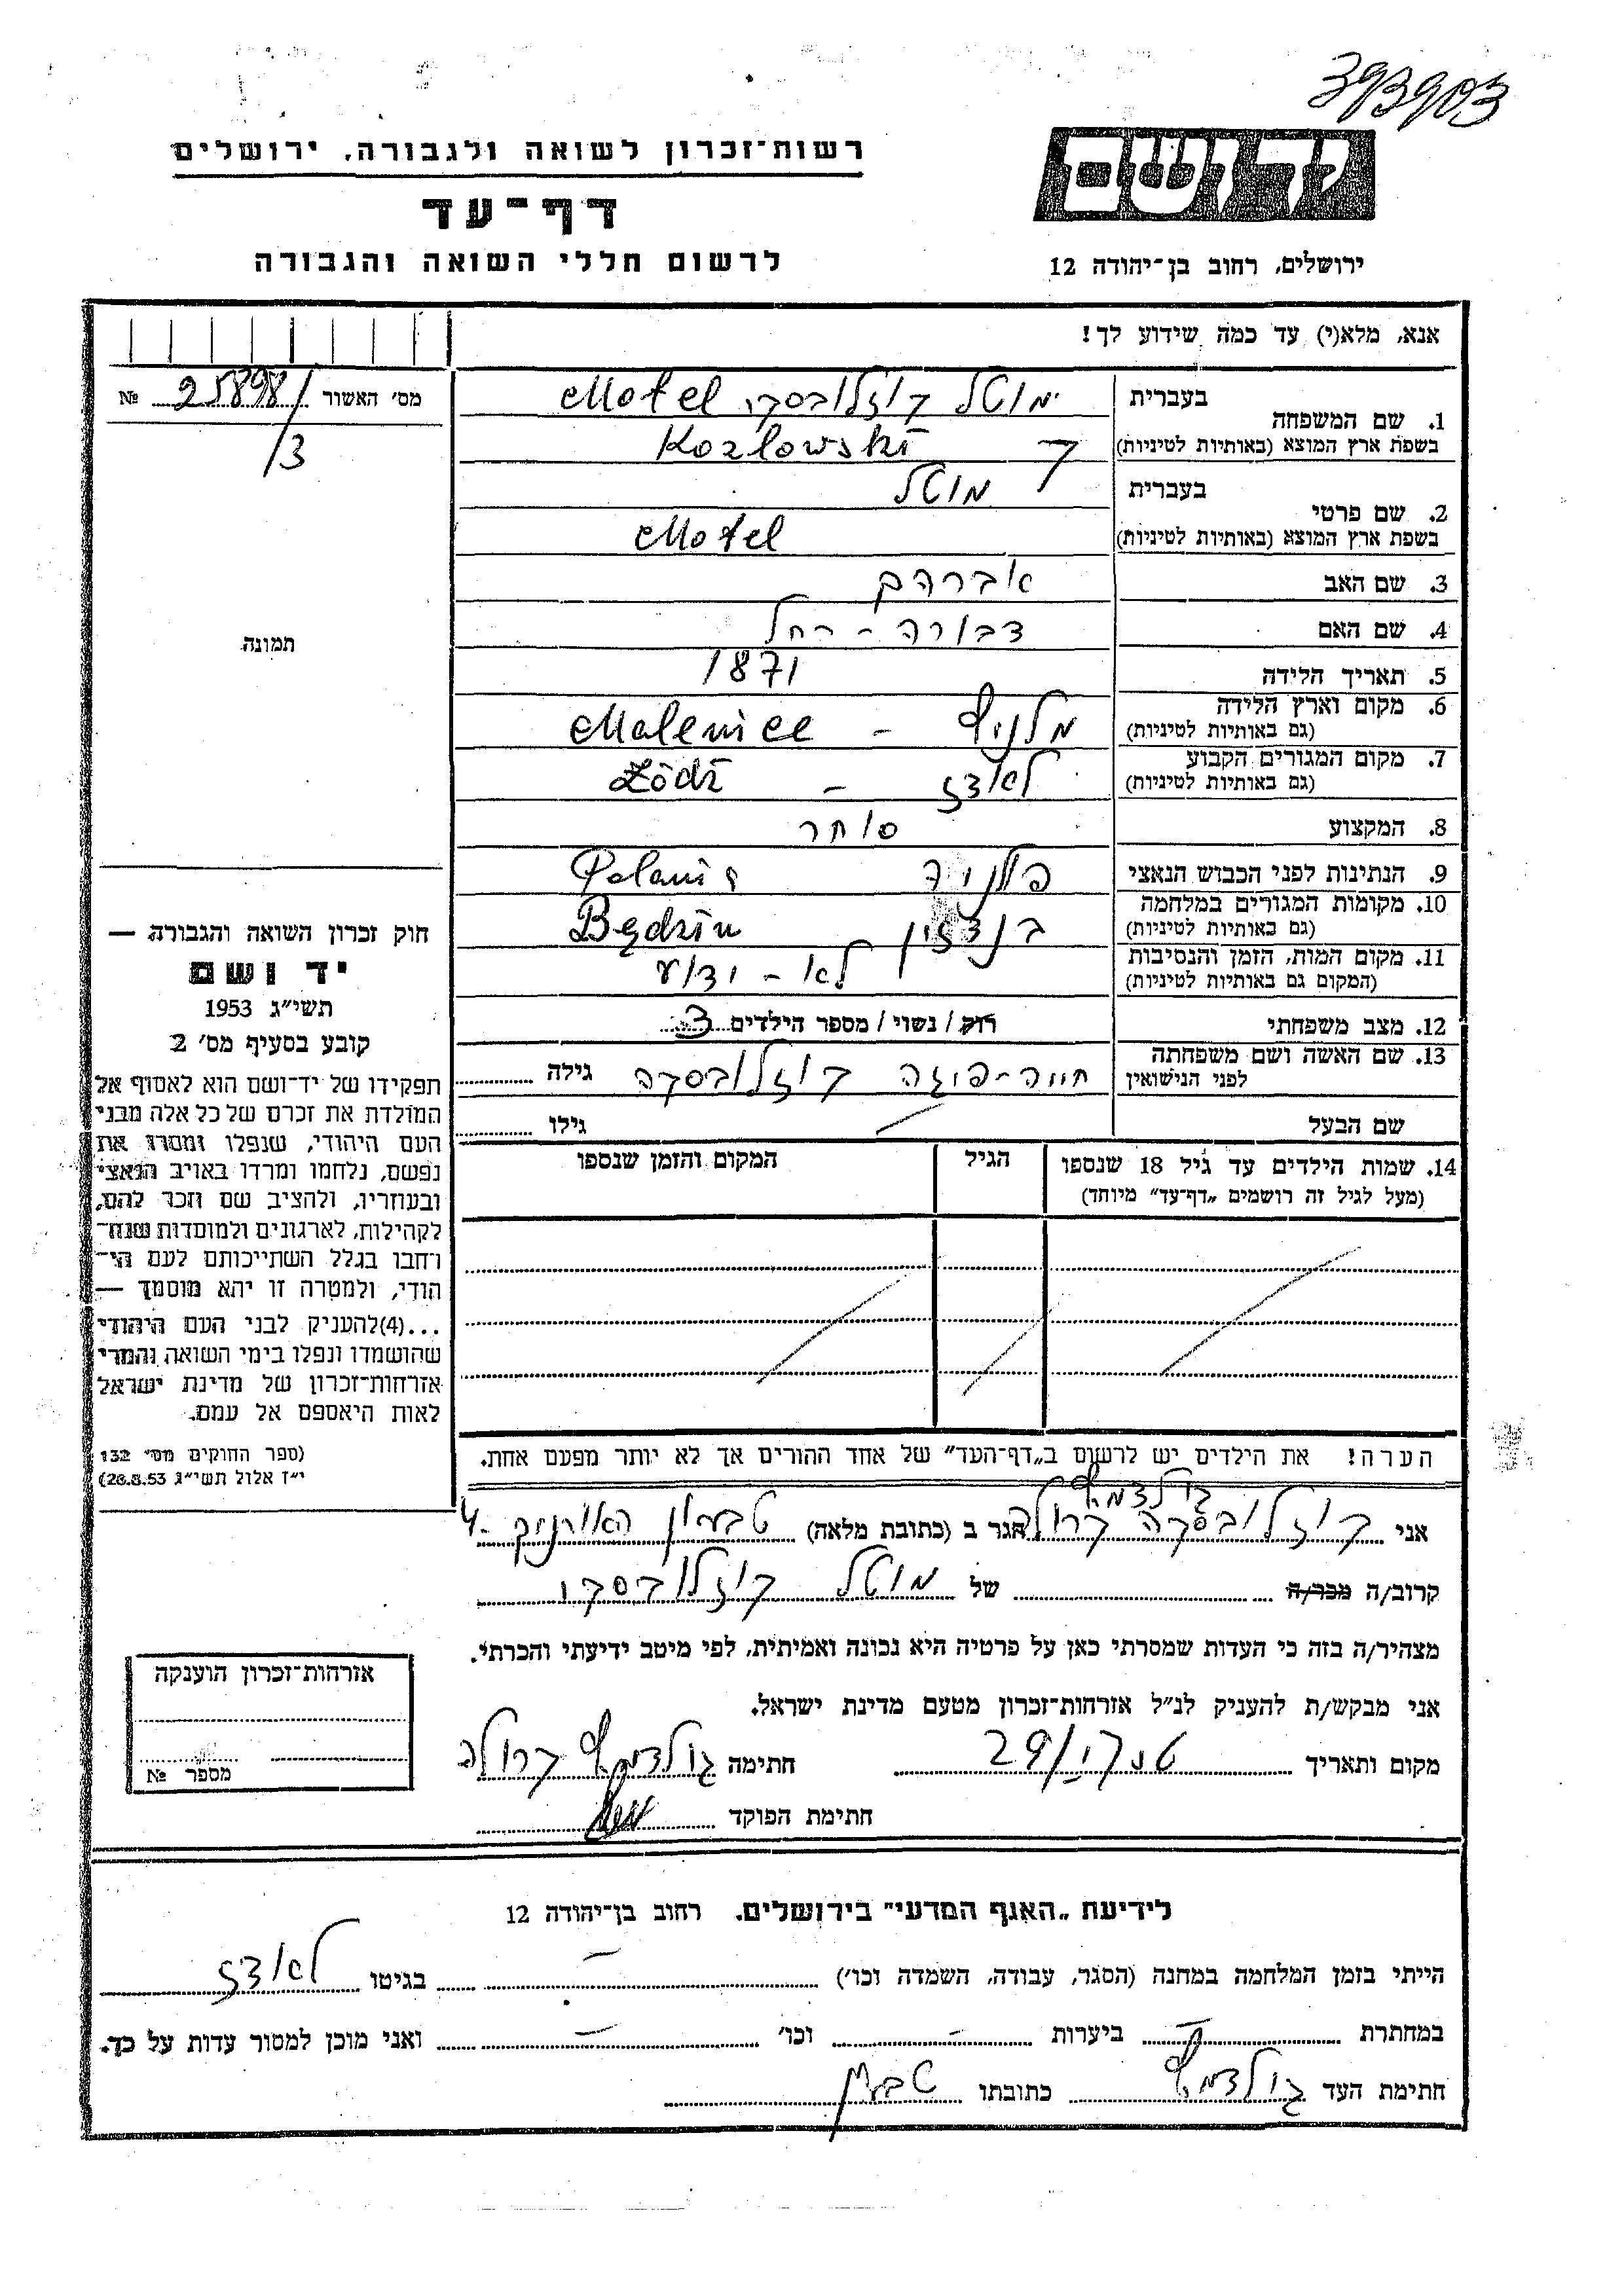 393903
יד ושם
רשות־זכרון לשואה ולגבורה, ירושלים
דף־עד
לרשום חללי השואה והגבורה
ירושלים, רחוב בן־יהודה 12
אנא, מלא(י) עד כמה שידוע לך!
מס׳ האשור 25898/ №
/3
תמונה
1. שם המשפחה
בעברית מוטל קוזלובסקי Motel
בשפת ארץ המוצא (באותיות לטיניות) Kozłowski
2. שם פרטי
בעברית מוטל
בשפת ארץ המוצא (באותיות לטיניות) Motel
3. שם האב אברהם
4. שם האם דבורה - רחל
5. תאריך הלידה 1871
6. מקום וארץ הלידה מלניץ - Malenice
(גם באותיות לטיניות)
7. מקום המגורים הקבוע לאודז - Łódź
(גם באותיות לטיניות)
8. המקצוע סוחר
9. הנתינות לפני הכבוש הנאצי פולניה
10. מקומות המגורים במלחמה בנדזין Będzin
(גם באותיות לטיניות)
11. מקום המות, הזמן והנסיבות לא - ידוע
(המקום גם באותיות לטיניות)
12. מצב משפחתי רוק / נשוי / מספר הילדים 3
13. שם האשה ושם משפחתה חייה - קוזלובסקה גילה
לפני הנישואין
שם הבעל גילו
14. שמות הילדים עד גיל 18 שנספו הגיל המקום והזמן שנספו
(מעל לגיל זה רושמים „דף־עד״ מיוחד)
הערה! את הילדים יש לרשום ב„דף־העד״ של אחד ההורים אך לא יותר מפעם אחת.
חוק זכרון השואה והגבורה —
יד ושם
תשי״ג 1953
קובע בסעיף מס׳ 2
תפקידו של יד־ושם הוא לאסוף אל
המולדת את זכרם של כל אלה מבני
העם היהודי, שנפלו ומסרו את
נפשם, נלחמו ומרדו באויב הנאצי
ובעוזריו, ולהציב שם וזכר להם,
לקהילות, לארגונים ולמוסדות שנח־
רחבו בגלל השתייכותם לעם הי־
הודי, ולמטרה זו יהא מוסמך —
...(4)להעניק לבני העם היהודי
שהושמדו ונפלו בימי השואה והמרי
אזרחות־זכרון של מדינת ישראל
לאות היאספם אל עמם.
(ספר החוקים מס׳ 132
י״ז אלול תשי״ג 28.8.53)
אני קוזלובסקה קרולה הגר ב (כתובת מלאה) טבעון
קרוב/ה מכר/ה של מוטל קוזלובסקי
מצהיר/ה בזה כי העדות שמסרתי כאן על פרטיה היא נכונה ואמיתית, לפי מיטב ידיעתי והכרתי.
אני מבקש/ת להעניק לנ״ל אזרחות־זכרון מטעם מדינת ישראל.
מקום ותאריך חתימה קרולה
חתימת הפוקד
אזרחות־זכרון הוענקה
מספר №
לידיעת „האגף המדעי״ בירושלים. רחוב בן־יהודה 12
הייתי בזמן המלחמה במחנה (הסגר, עבודה, השמדה וכו׳) - בגיטו לאודז
במחתרת - ביערות - וכו׳ - ואני מוכן למסור עדות על כך.
חתימת העד כתובתו טבעון